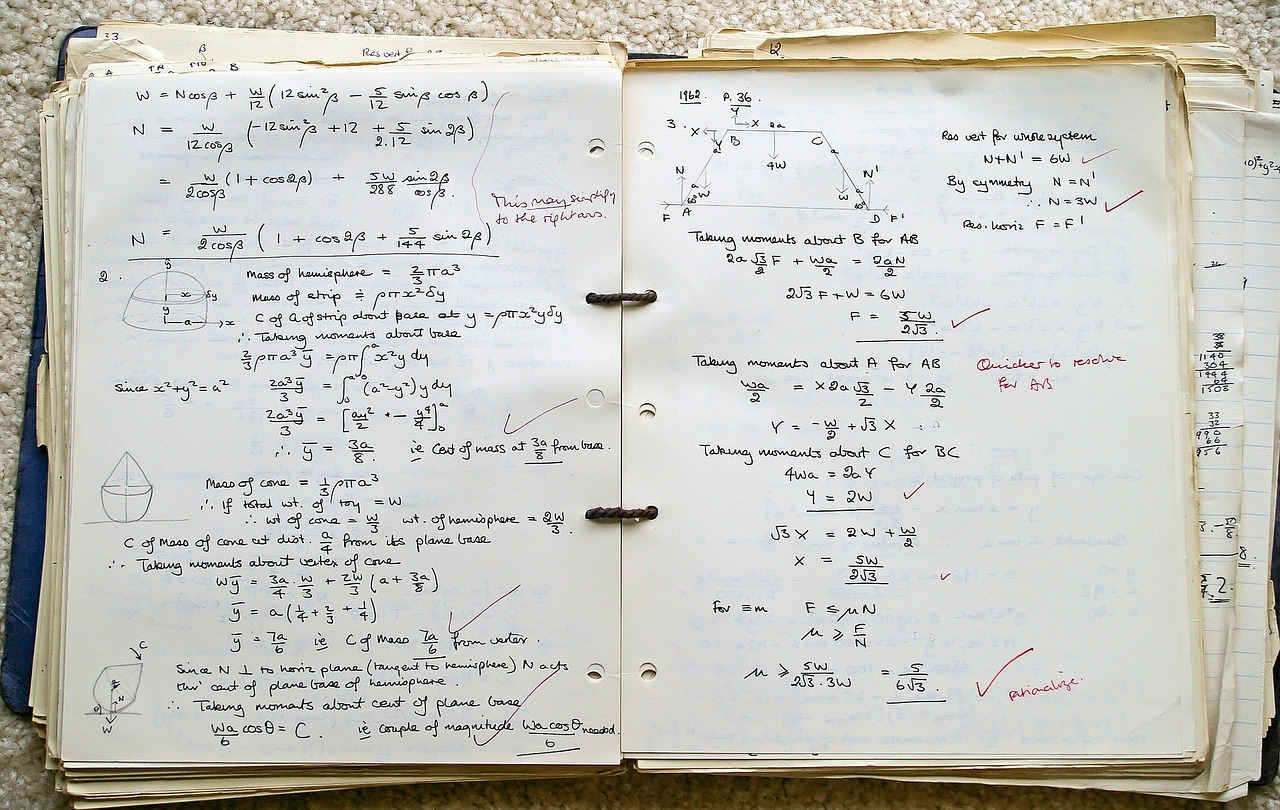 33.
β
Res vert
A B
W = N cos β + W/12 (12 sin²β − 5/12 sin β cos β)
N = W/12cosβ (−12 sin²β + 12 + 5/2.12 sin 2β)
= W/2cosβ (1 + cos 2β) + 5W/288 sin 2β/cos β.
This may simplify
to the right ans.
N = W/2cosβ (1 + cos 2β + 5/144 sin 2β)
2.
y
x δy
y
a x
Mass of hemisphere = 2/3 πa³
Mass of strip ≑ ρπx²δy
C of G of strip about base at y = ρπx²yδy
∴ Taking moments about base
2/3 ρπa³ȳ = ρπ∫₀ᵃ x²y dy
Since x²+y²=a² 2a³ȳ/3 = ∫₀ᵃ (a²−y²)y dy
2a³ȳ/3 = [ay²/2 + − y⁴/4]₀ᵃ
∴ ȳ = 3a/8 ie Cent of mass at 3a/8 from base.
Mass of cone = 1/3 ρπa³
∴ If total wt. of toy = W
∴ wt of cone = W/3 wt. of hemisphere = 2W/3.
C of Mass of cone at dist. a/4 from its plane base
∴ Taking moments about vertex of cone
Wȳ = 3a/4 . W/3 + 2W/3 (a + 3a/8)
ȳ = a(1/4 + 2/3 + 1/4)
ȳ = 7a/6 ie C of Mass 7a/6 from vertex.
C
N
θ
W
Since N ⊥ to horiz plane (tangent to hemisphere) N acts
thro' cent of plane base of hemisphere.
∴ Taking moments about cent of plane base
Wa/6 cosθ = C. ie couple of magnitude Wa cosθ/6 needed.
12.
1962. P. 36.
Y
3. X X 2a
Y B C
a a
4W
N N'
a W W a
60° 60°
F A D F'
Res vert for whole system
N+N' = 6W
By symmetry N = N'
∴ N = 3W
Res. horiz F = F'
Taking moments about B for AB
2a √3/2 F + Wa/2 = 2aN/2
2√3 F + W = 6W
F = 5W/2√3.
Taking moments about A for AB
Quicker to resolve
for AB
Wa/2 = X 2a √3/2 − Y 2a/2
Y = −W/2 + √3 X
Taking moments about C for BC
4Wa = 2aY
Y = 2W
√3 X = 2W + W/2
X = 5W/2√3
For ≡m F ≤ μN
μ ≥ F/N
μ ≥ 5W/2√3.3W = 5/6√3.
rationalize.
38
38
1140
304
1444
64
1508
33
32
990
66
956